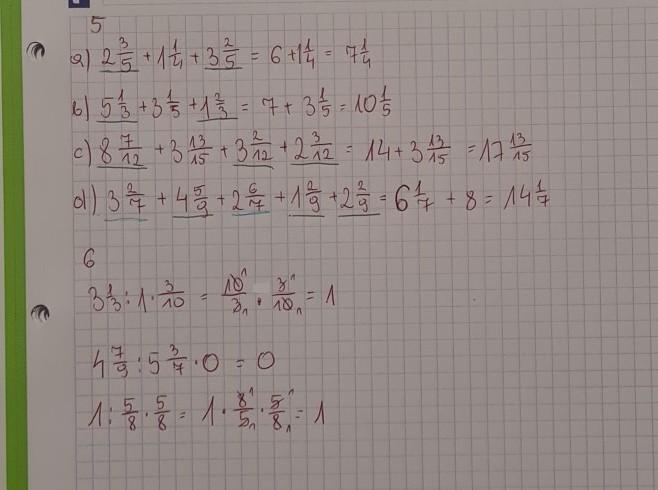 5
a) 2 3/5 + 1 1/4 + 3 2/5 = 6 + 1 1/4 = 7 1/4
b) 5 1/3 + 3 1/5 + 1 2/3 = 7 + 3 1/5 = 10 1/5
c) 8 7/12 + 3 13/15 + 3 2/12 + 2 3/12 = 14 + 3 13/15 = 17 13/15
d) 3 2/7 + 4 5/9 + 2 6/7 + 1 2/9 + 2 2/9 = 6 1/7 + 8 = 14 1/7
6
3 1/3 : 1 · 3/10 = 10¹/3₁ · 3¹/10₁ = 1
4 7/9 : 5 3/7 · 0 = 0
1 : 5/8 · 5/8 = 1 · 8¹/5₁ · 5¹/8₁ = 1